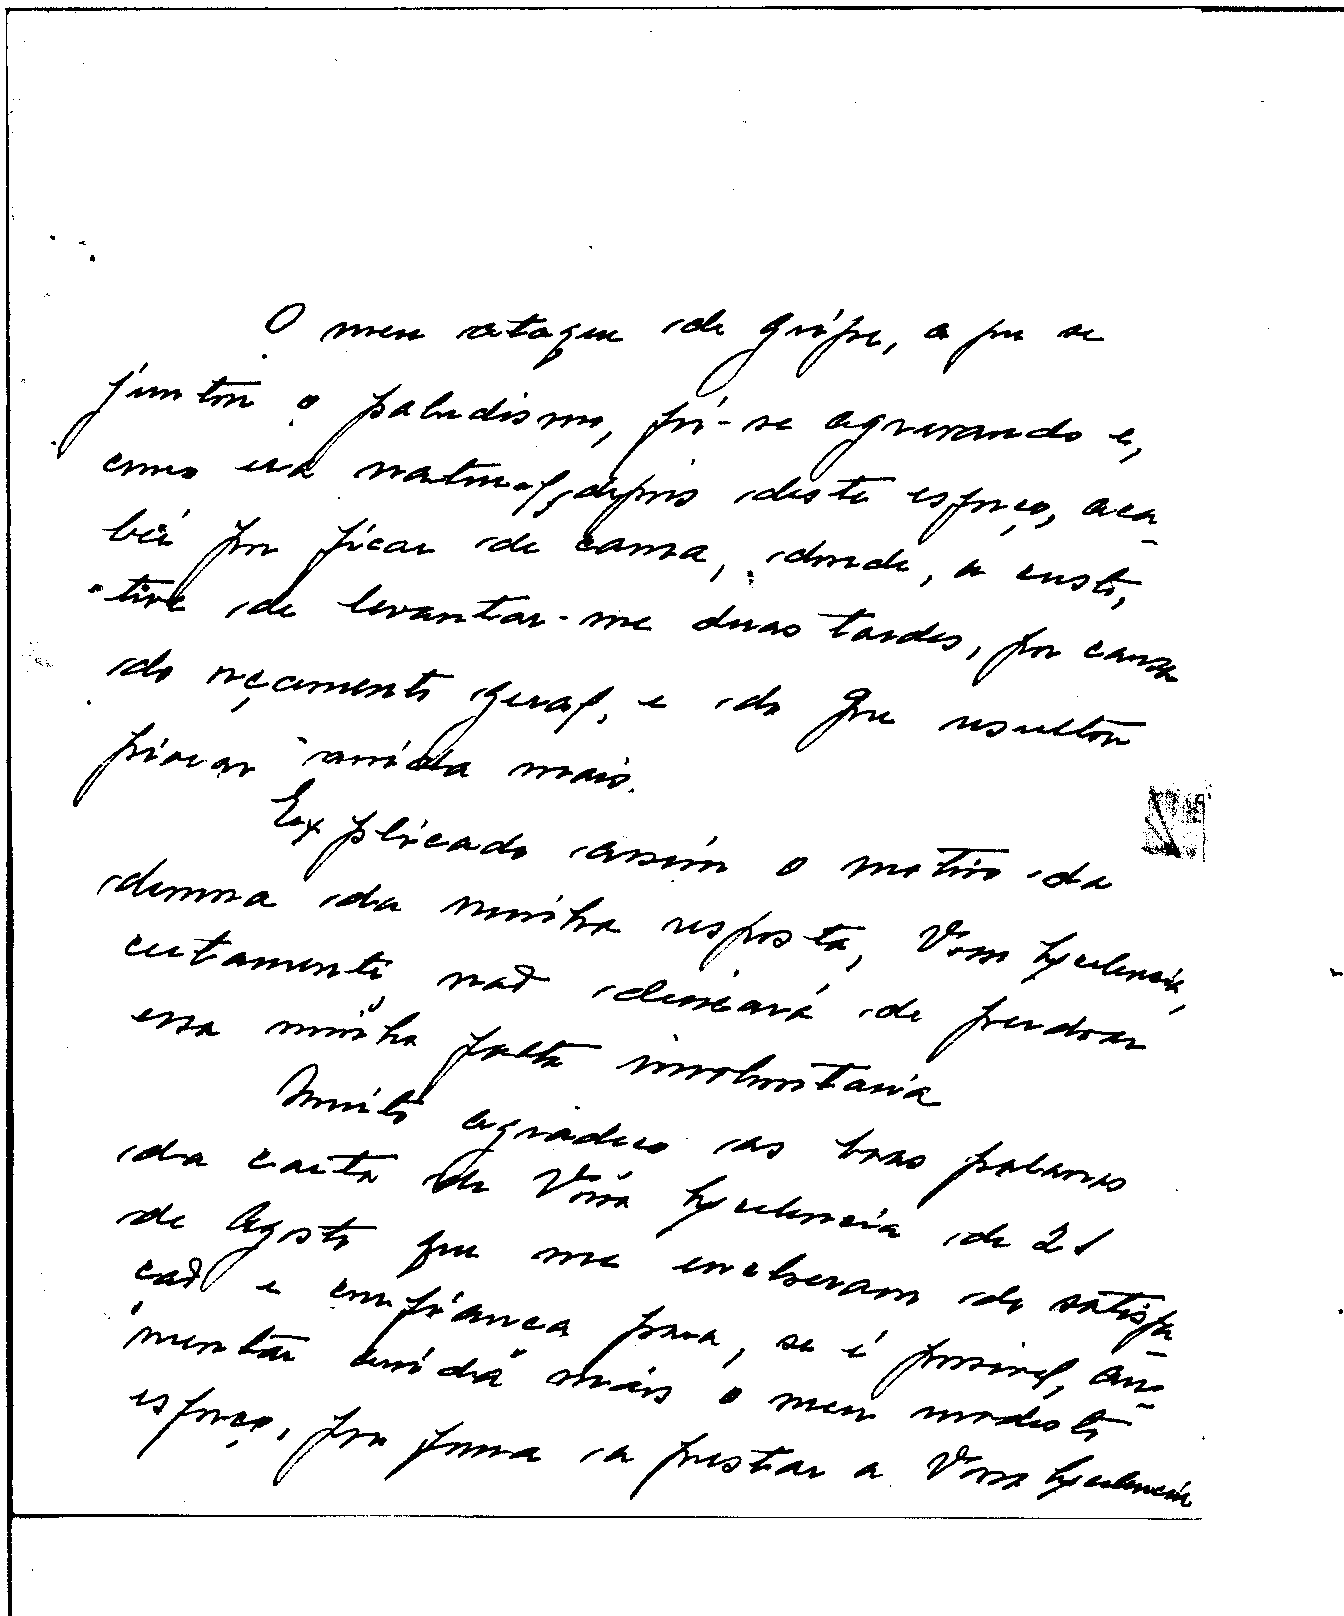 O meu ataque de gripe, a que se
juntou o paludismo, foi-se agravando e,
como era natural, depois deste esforço, aca-
bei por ficar de cama, donde, a custo,
tive de levantar-me duas tardes, por causa
do orçamento geral, e do que resultou
piorar ainda mais.
Explicado assim o motivo da
demora da minha resposta, Vossa Excelencia,
certamente não deixará de perdoar
essa minha falta involuntaria
Muito agradeço as boas palavras
da carta de Vossa Excelencia de 21
de Agosto que me encheram de satisfa-
ção e confiança para, se é possivel, au-
mentar ainda mais o meu modesto
esforço, por forma a prestar a Vossa Excelencia